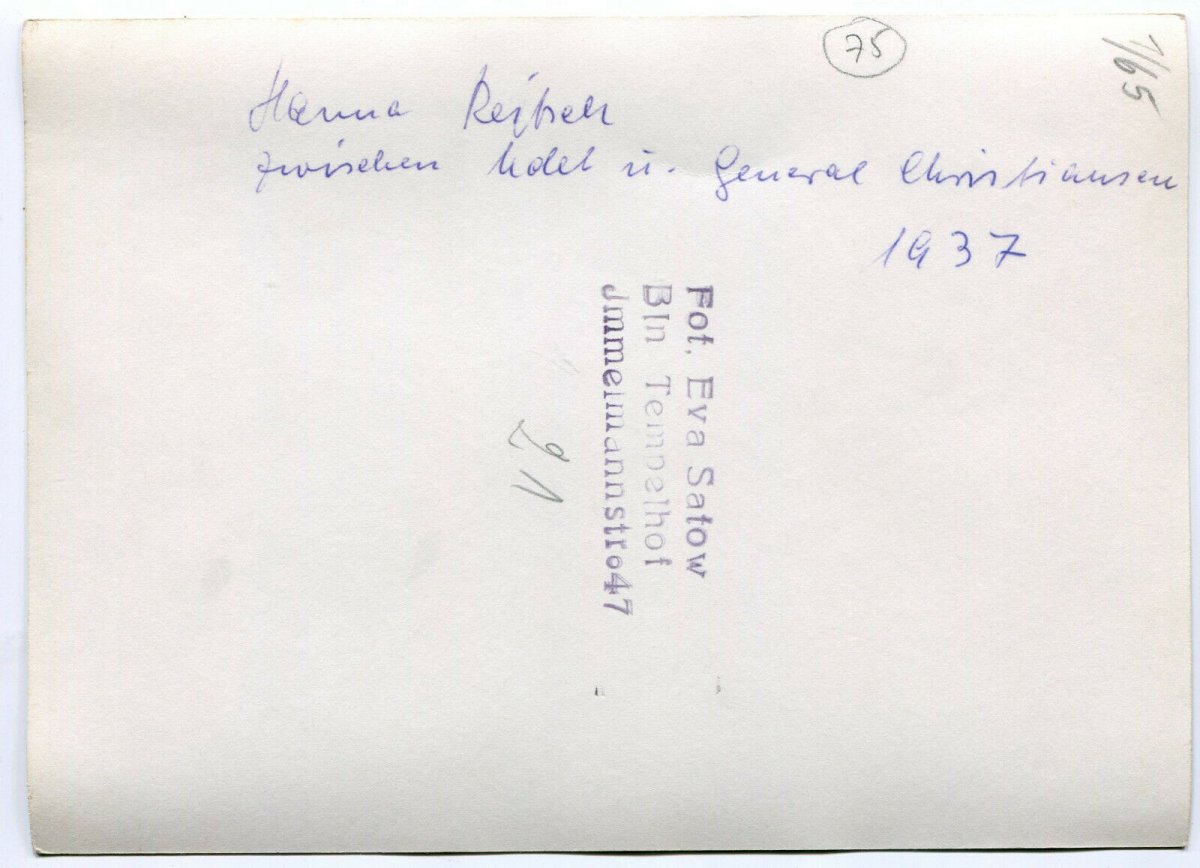 75
1/65
Hanna Reitsch
zwischen Udet u. General Christiansen
1937
Fot. Eva Satow
Bln Tempelhof
Jmmelmannstr.47
21